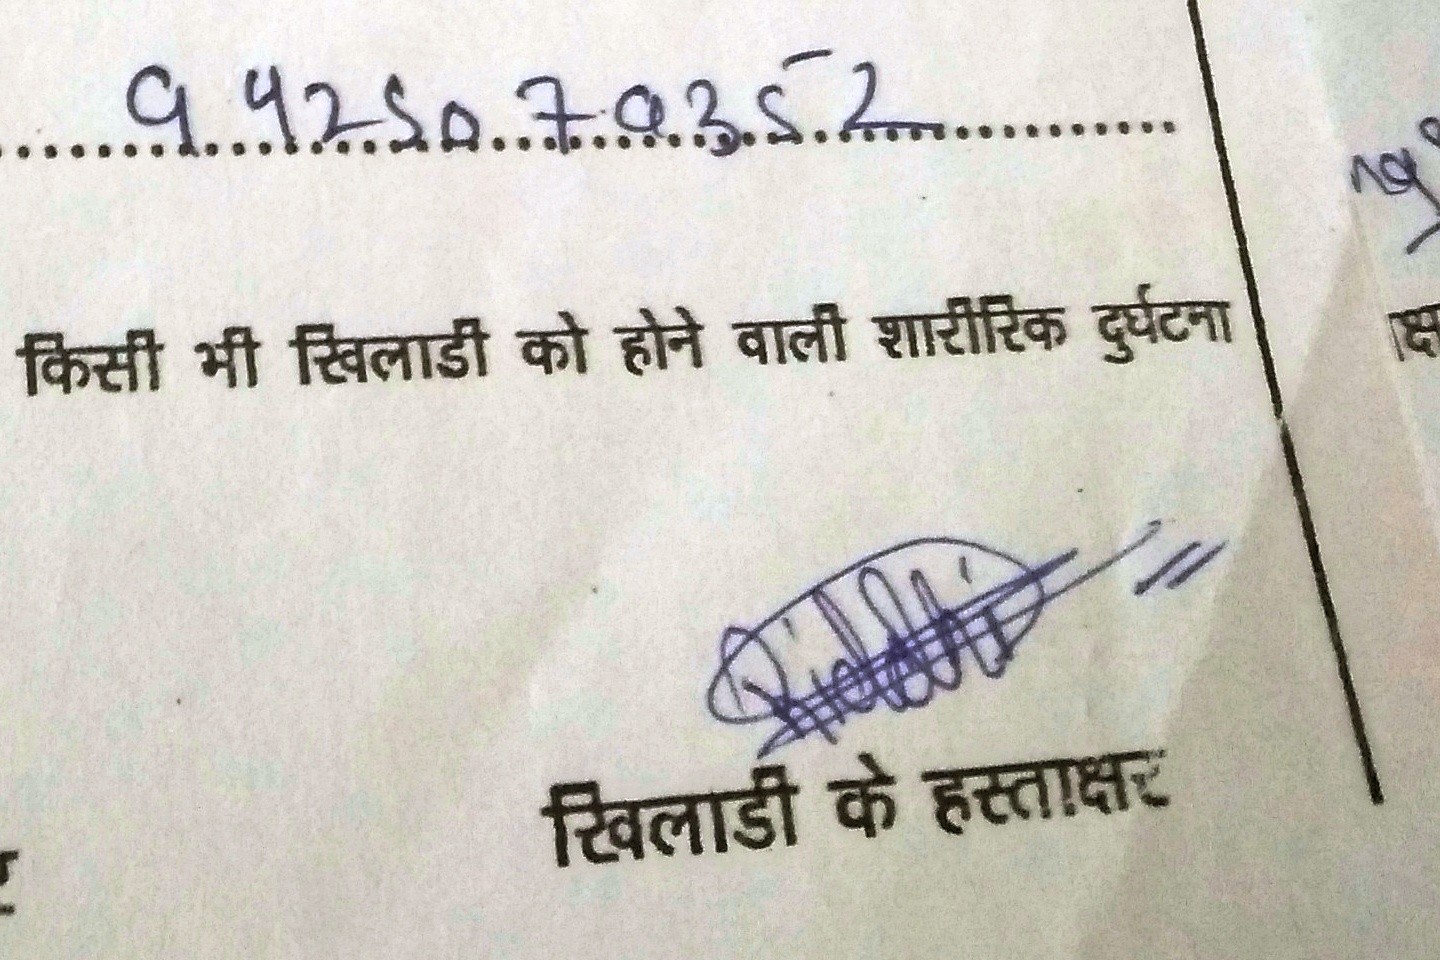 9425070352
किसी भी खिलाडी को होने वाली शारीरिक दुर्घटना
खिलाडी के हस्ताक्षर